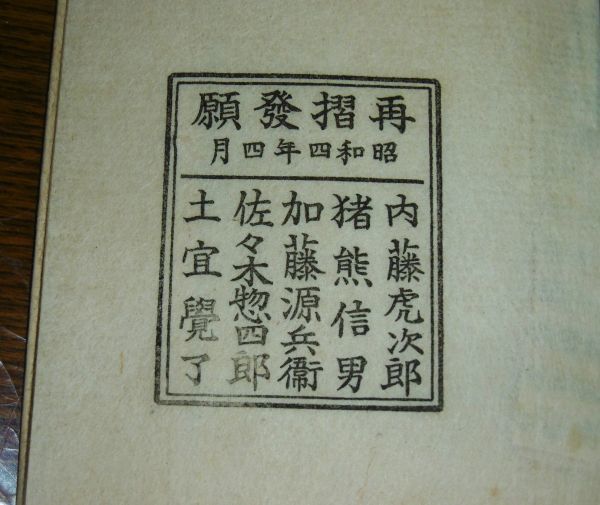 再摺發願
昭和四年四月
内藤虎次郎
猪熊信男
加藤源兵衞
佐々木惣四郎
土宜覺了